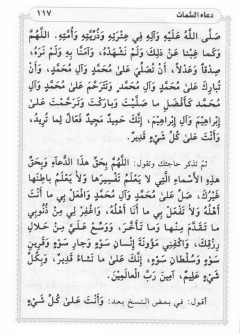 دعاء السِّمات
١١٧
صَلَّى اللَّهُ عَلَيْهِ وَآلِهِ فِي عِتْرَتِهِ وَذُرِّيَّتِهِ وَأُمَّتِهِ. اللَّهُمَّ
وَكَمَا غِبْنَا عَنْ ذَلِكَ وَلَمْ نَشْهَدْهُ، وَآمَنَّا بِهِ وَلَمْ نَرَهُ،
صِدْقاً وَعَدْلاً، أَنْ تُصَلِّيَ عَلَىٰ مُحَمَّدٍ وَآلِ مُحَمَّدٍ، وَأَنْ
تُبَارِكَ عَلَىٰ مُحَمَّدٍ وَآلِ مُحَمَّدٍ وَتَرَحَّمَ عَلَىٰ مُحَمَّدٍ وَآلِ
مُحَمَّدٍ كَأَفْضَلِ مَا صَلَّيْتَ وَبَارَكْتَ وَتَرَحَّمْتَ عَلَىٰ
إِبْرَاهِيمَ وَآلِ إِبْرَاهِيمَ، إِنَّكَ حَمِيدٌ مَجِيدٌ فَعَّالٌ لِمَا تُرِيدُ،
وَأَنْتَ عَلَىٰ كُلِّ شَيْءٍ قَدِيرٌ.
ثمّ تذكر حاجتك وتقول: اللَّهُمَّ بِحَقِّ هَذَا الدُّعَآءِ وَبِحَقِّ
هَذِهِ الأَسْمَاءِ الَّتِي لا يَعْلَمُ تَفْسِيرَهَا وَلا يَعْلَمُ بَاطِنَهَا
غَيْرُكَ، صَلِّ عَلَىٰ مُحَمَّدٍ وَآلِ مُحَمَّدٍ وَافْعَلْ بِي مَا أَنْتَ
أَهْلُهُ وَلا تَفْعَلْ بِي مَا أَنَا أَهْلُهُ، وَاغْفِرْ لِي مِنْ ذُنُوبِي
مَا تَقَدَّمَ مِنْهَا وَمَا تَأَخَّرَ، وَوَسِّعْ عَلَيَّ مِنْ حَلالِ
رِزْقِكَ، وَاكْفِنِي مَؤُونَةَ إِنْسَانِ سَوْءٍ وَجَارِ سَوْءٍ وَقَرِينِ
سَوْءٍ وَسُلْطَانِ سَوْءٍ، إِنَّكَ عَلَىٰ مَا تَشَاءُ قَدِيرٌ، وَبِكُلِّ
شَيْءٍ عَلِيمٌ، آمِينَ رَبَّ الْعَالَمِينَ.
أقول: في بعض النسخ بعد: وَأَنْتَ عَلَىٰ كُلِّ شَيْءٍ